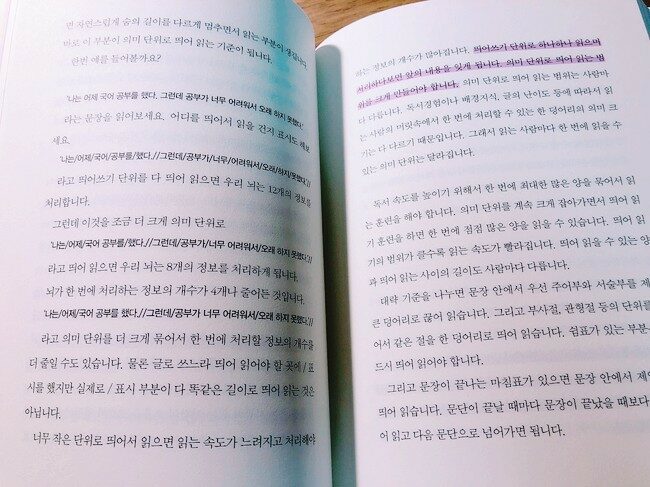 면 자연스럽게 숨의 길이를 다르게 멈추면서 읽는 부분이 생깁니다.
바로 이 부분이 의미 단위로 띄어 읽는 기준이 됩니다.
한번 예를 들어볼까요?
'나는 어제 국어 공부를 했다. 그런데 공부가 너무 어려워서 오래 하지 못했다.'
라는 문장을 읽어보세요. 어디를 띄어서 읽을 건지 표시도 해보
세요.
'나는/어제/국어/공부를/했다.//그런데/공부가/너무/어려워서/오래/하지/못했다.'//
라고 띄어쓰기 단위를 다 띄어 읽으면 우리 뇌는 12개의 정보를
처리합니다.
그런데 이것을 조금 더 크게 의미 단위로
'나는/어제/국어 공부를/했다.//그런데/공부가/너무 어려워서/오래 하지 못했다.'//
라고 띄어 읽으면 우리 뇌는 8개의 정보를 처리하게 됩니다.
뇌가 한 번에 처리하는 정보의 개수가 4개나 줄어든 것입니다.
'나는/어제 국어 공부를 했다.//그런데/공부가 너무 어려워서/오래 하지 못했다.'//
라고 의미 단위를 더 크게 묶어서 한 번에 처리할 정보의 개수를
더 줄일 수도 있습니다. 물론 글로 쓰느라 띄어 읽어야 할 곳에 / 표
시를 했지만 실제로 / 표시 부분이 다 똑같은 길이로 띄어 읽는 것은
아닙니다.
너무 작은 단위로 띄어서 읽으면 읽는 속도가 느려지고 처리해야
하는 정보의 개수가 많아집니다. 띄어쓰기 단위로 하나하나 읽으며
처리하다보면 앞의 내용을 잊게 됩니다. 의미 단위로 띄어 읽는 범
위를 크게 만들어야 합니다. 의미 단위로 띄어 읽는 범위는 사람마
다 다릅니다. 독서경험이나 배경지식, 글의 난이도 등에 따라서 읽
는 사람의 머릿속에서 한 번에 처리할 수 있는 한 덩어리의 의미 크
기는 다 다르기 때문입니다. 그래서 읽는 사람마다 한 번에 읽을 수
있는 의미 단위는 달라집니다.
독서 속도를 높이기 위해서 한 번에 최대한 많은 양을 묶어서 읽
는 훈련을 해야 합니다. 의미 단위를 계속 크게 잡아가면서 띄어 읽
기 훈련을 하면 한 번에 점점 많은 양을 읽을 수 있습니다. 띄어 읽
기의 범위가 클수록 읽는 속도가 빨라집니다. 띄어 읽을 수 있는 양
과 띄어 읽는 사이의 길이도 사람마다 다릅니다.
대략 기준을 나누면 문장 안에서 우선 주어부와 서술부를 제
큰 덩어리로 끊어 읽습니다. 그리고 부사절, 관형절 등의 단위를
어서 같은 절을 한 덩어리로 띄어 읽습니다. 쉼표가 있는 부분
드시 띄어 읽어야 합니다.
그리고 문장이 끝나는 마침표가 있으면 문장 안에서 제
띄어 읽습니다. 문단이 끝날 때마다 문장이 끝났을 때보다
어 읽고 다음 문단으로 넘어가면 됩니다.